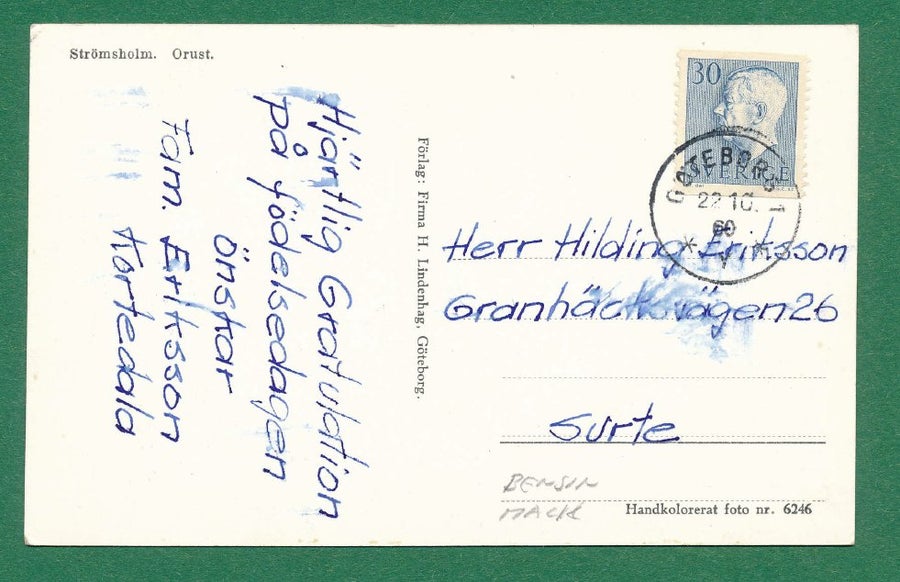 Strömsholm. Orust.
Hjärtlig Gratulation
på födelsedagen
önskar
Fam. Eriksson
Kortedala
Förlag: Firma H. Lindenhag, Göteborg.
30
SVERIGE
GÖTEBORG 1
22.10.
60
Herr Hilding Eriksson
Granhäcksvägen 26
Surte
BENSIN
MACK
Handkolorerat foto nr. 6246